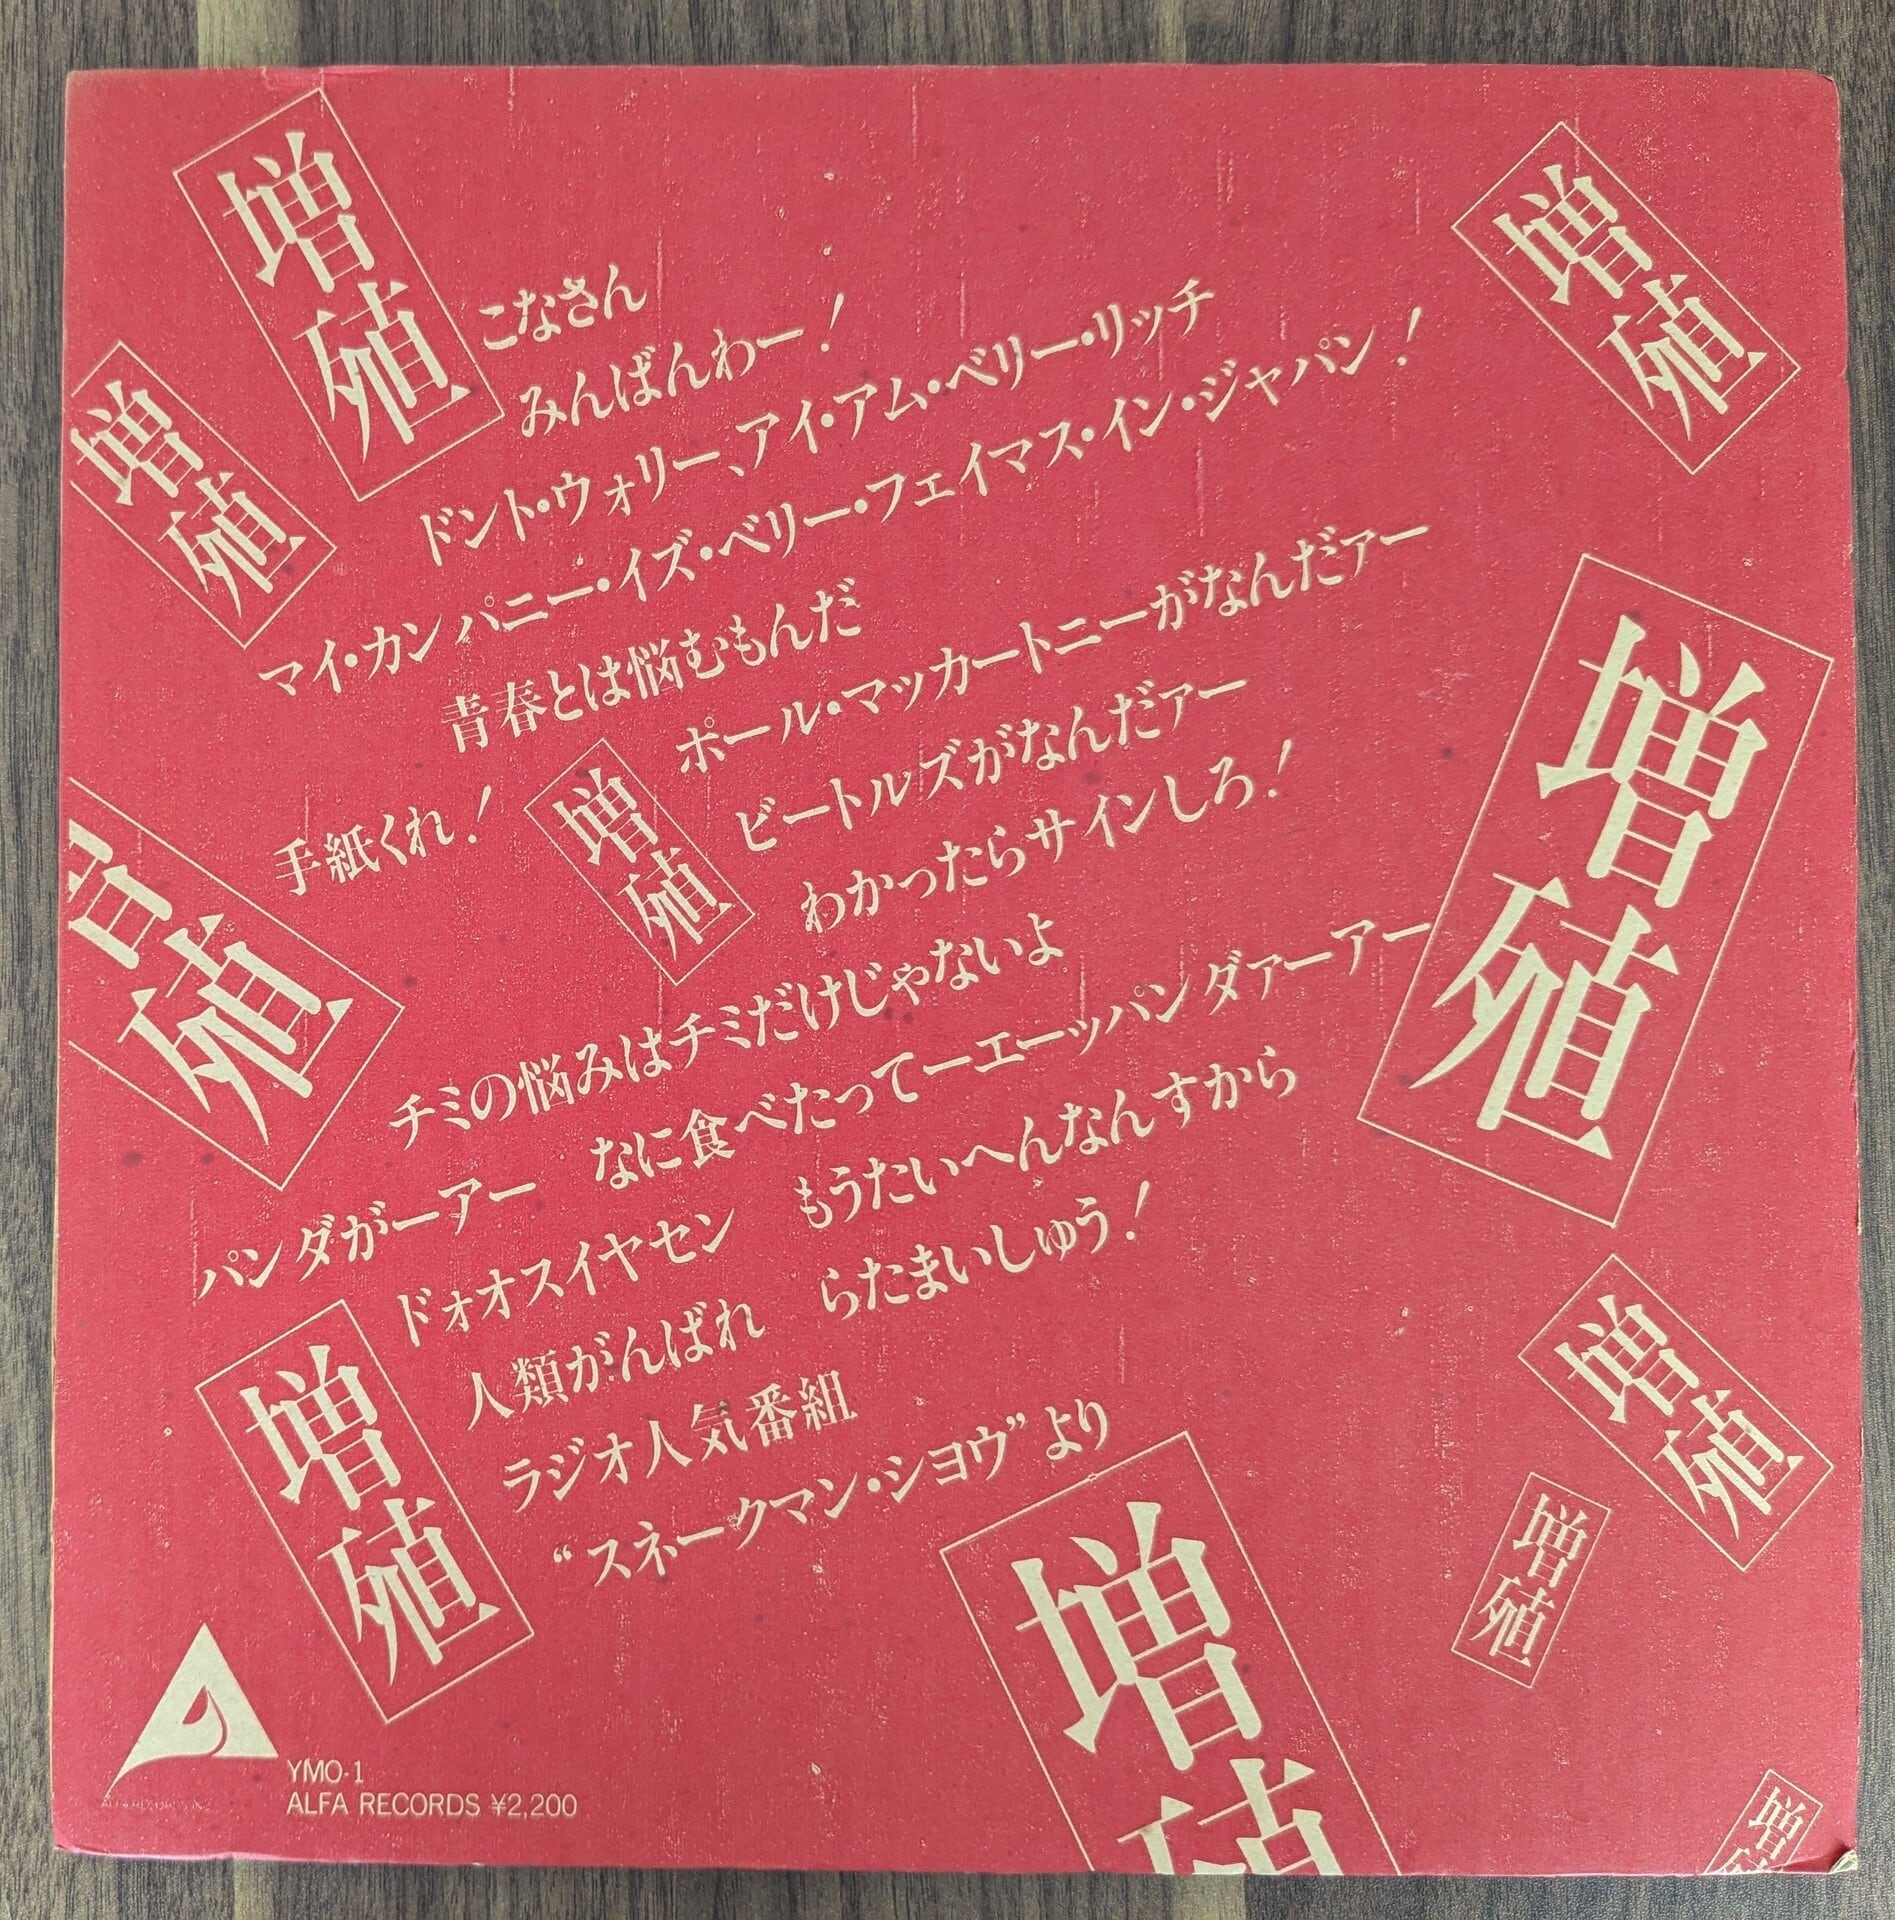 増殖
増殖
増殖
こなさん
みんばんわー！
ドント・ウォリー、アイ・アム・ベリー・リッチ
マイ・カンパニー・イズ・ベリー・フェイマス・イン・ジャパン！
青春とは悩むもんだ
ポール・マッカートニーがなんだァー
手紙くれ！
増殖
ビートルズがなんだァー
わかったらサインしろ！
増殖
増殖
チミの悩みはチミだけじゃないよ
パンダがーアー　なに食べたってーエーッパンダァーアー
ドォオスイヤセン　もうたいへんなんすから
人類がんばれ　らたまいしゅう！
ラジオ人気番組
“スネークマン・シヨウ”より
増殖
増殖
増殖
増殖
増殖
YMO-1
ALFA RECORDS ¥2,200